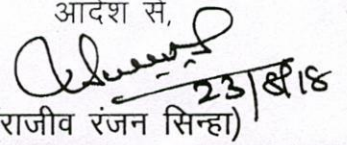 आदेश से,
23/8/18
राजीव रंजन सिन्हा)